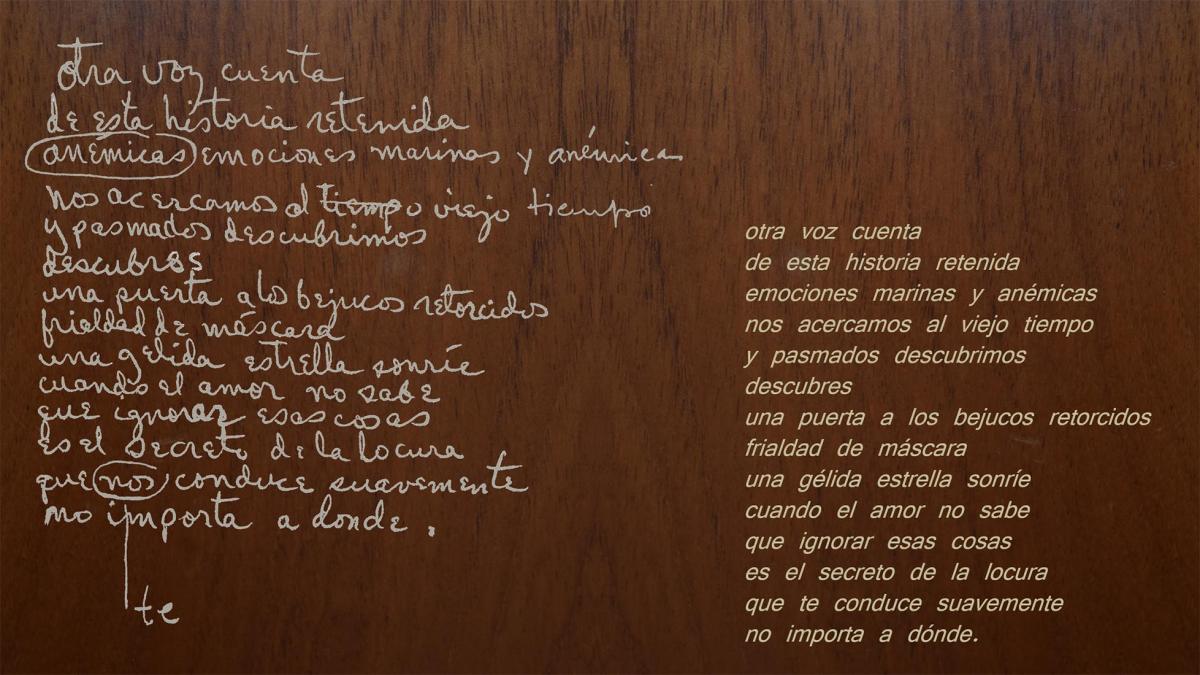 otra voz cuenta
de esta historia retenida
anémicas emociones marinas y anémicas
nos acercamos al tiempo viejo tiempo
y pasmados descubrimos
descubres
una puerta a los bejucos retorcidos
frialdad de máscara
una gelida estrella sonríe
cuando el amor no sabe
que ignorar esas cosas
es el secreto de la locura
que nos conduce suavemente
no importa a donde.
te
otra voz cuenta
de esta historia retenida
emociones marinas y anémicas
nos acercamos al viejo tiempo
y pasmados descubrimos
descubres
una puerta a los bejucos retorcidos
frialdad de máscara
una gélida estrella sonríe
cuando el amor no sabe
que ignorar esas cosas
es el secreto de la locura
que te conduce suavemente
no importa a dónde.